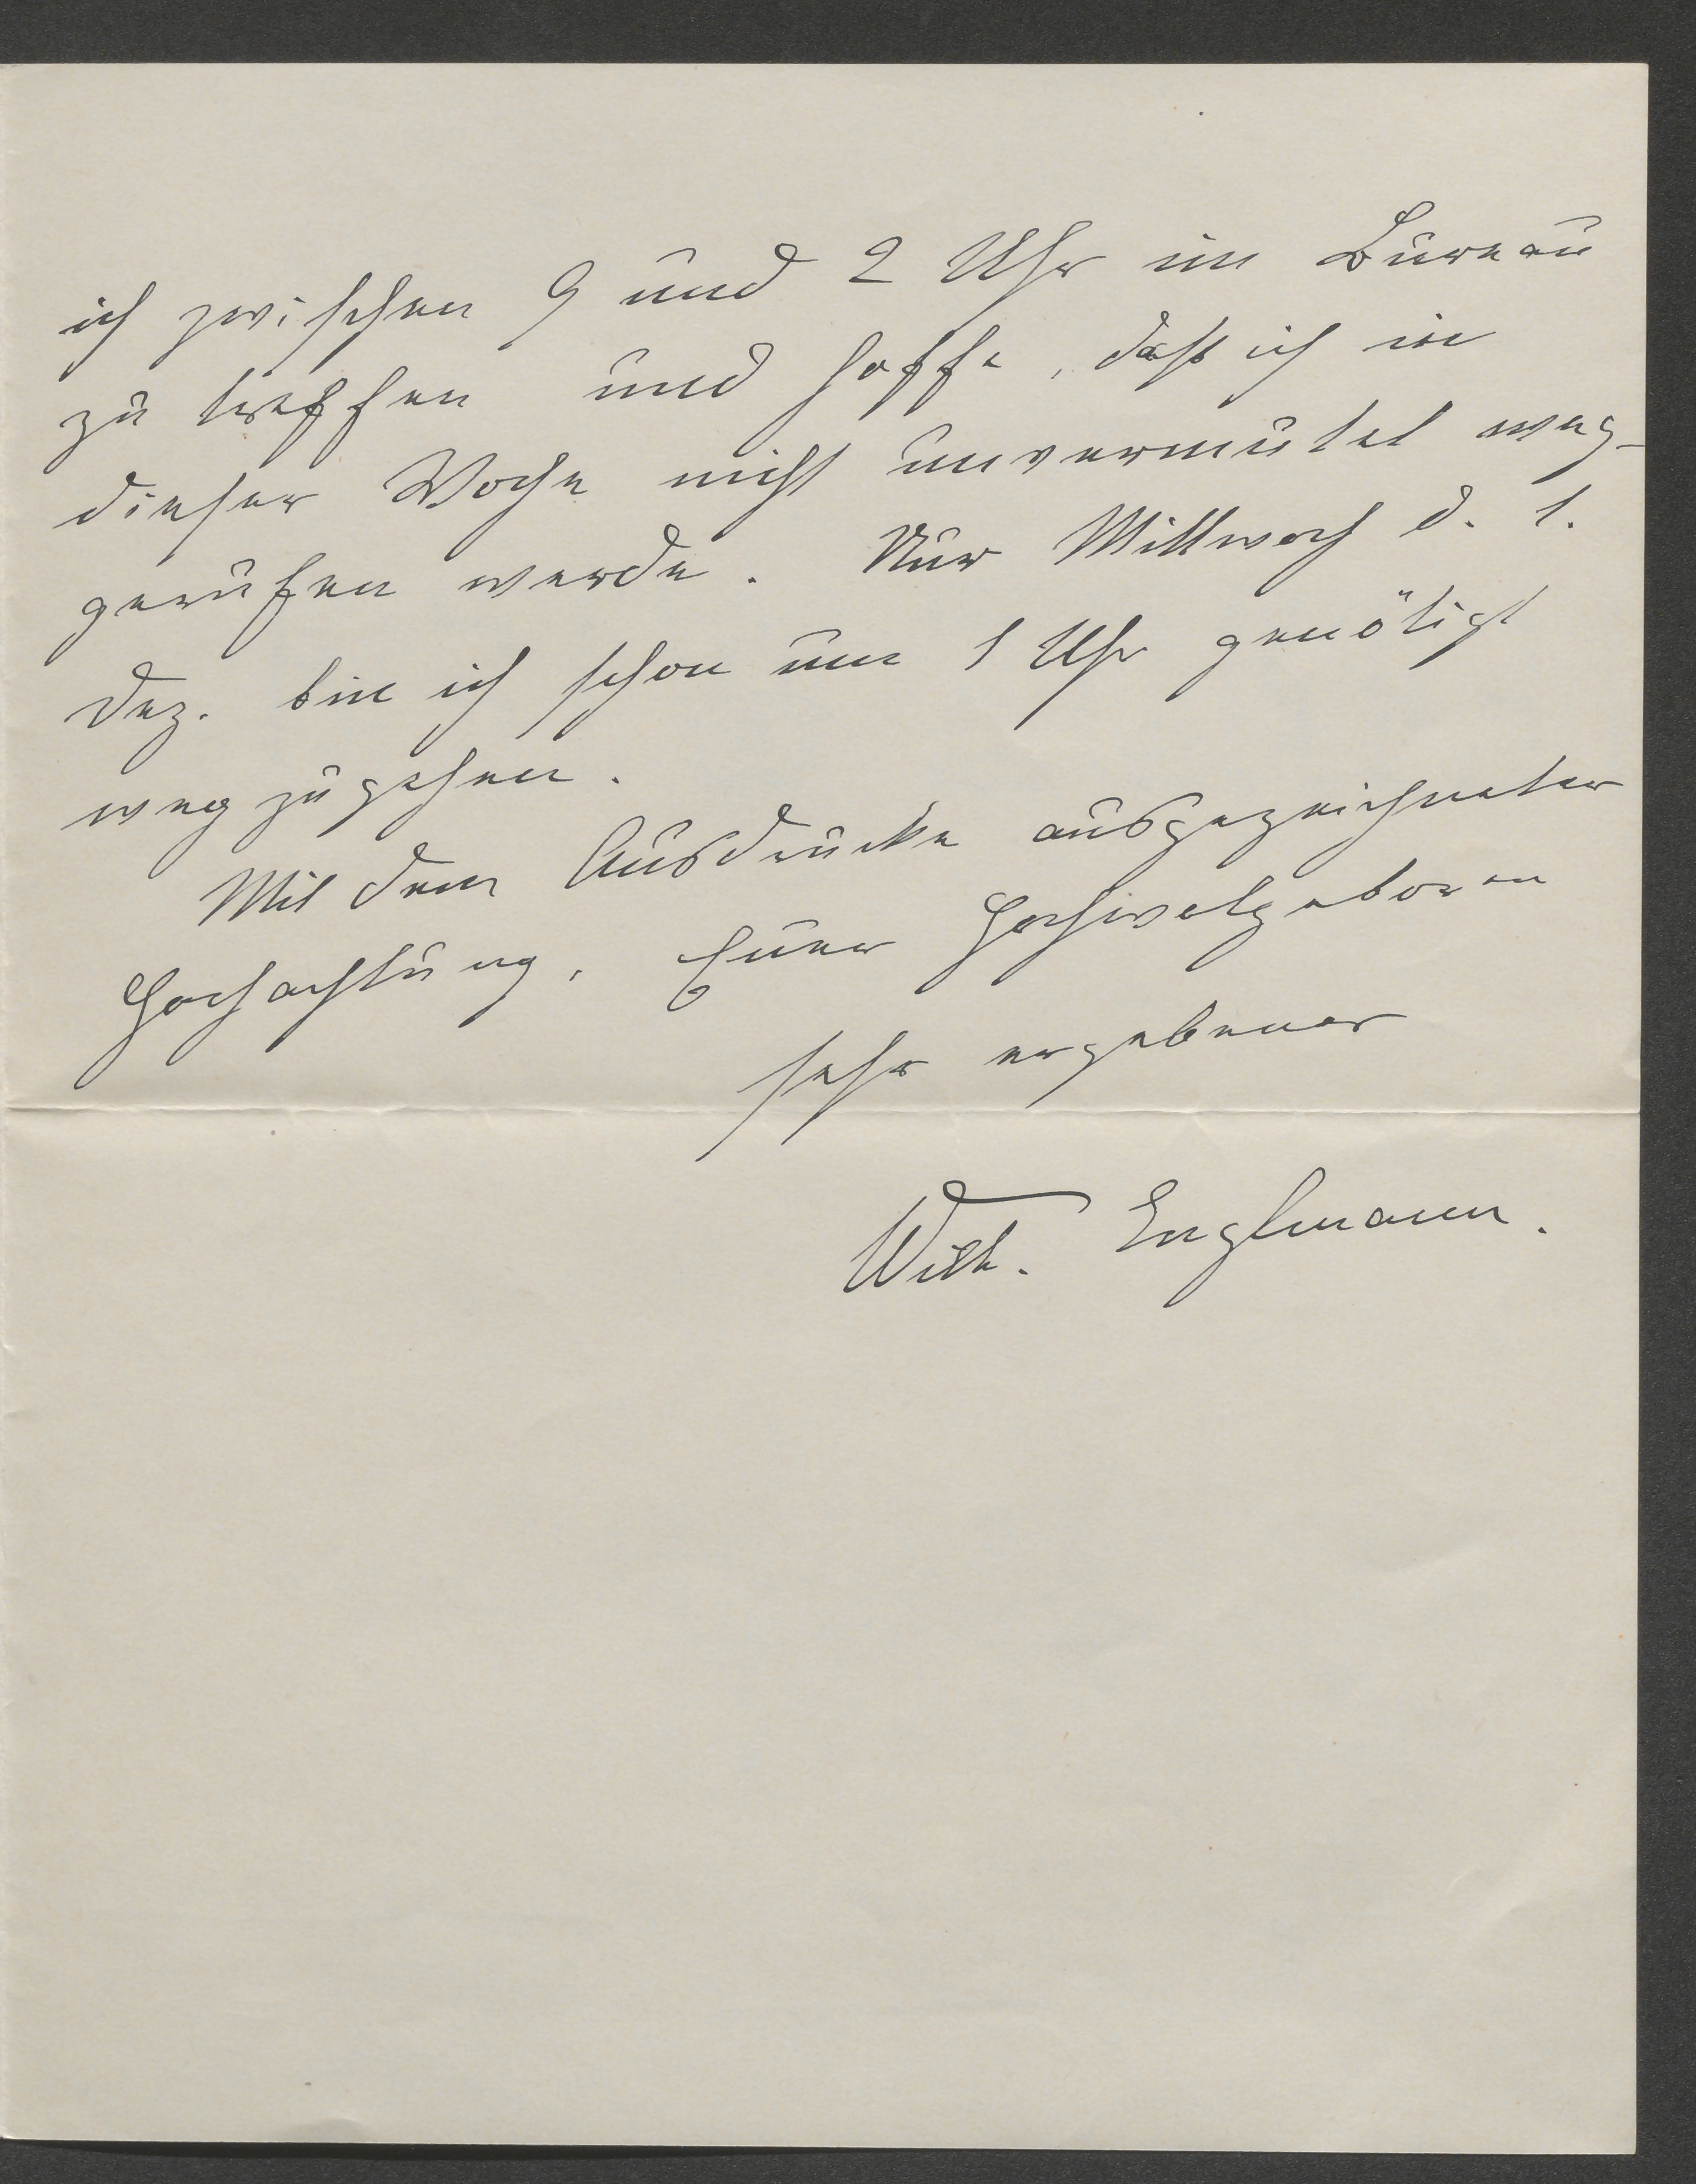 ich zwischen 9 und 2 Uhr im Bureau
zu treffen und hoffe, daß ich in
dieser Woche nicht unvermutet weg-
gerufen werde. Nur Mittwoch d. 1.
Dez. bin ich schon um 1 Uhr genötigt
wegzugehen.
Mit dem Ausdrucke ausgezeichneter
Hochachtung, Euer Hochwolgeboren
sehr ergebener
Wilh. Englmann.